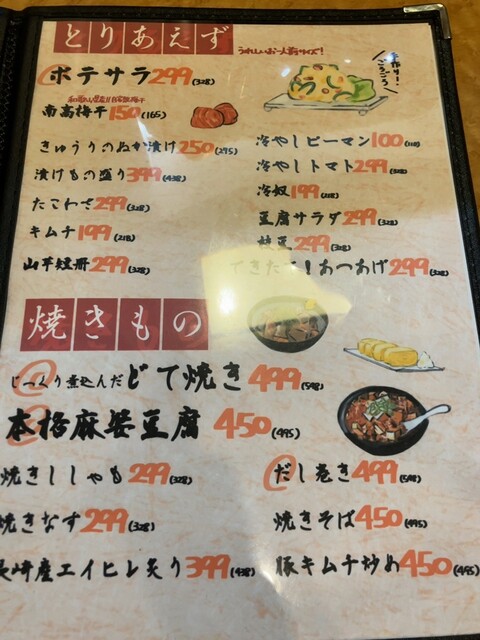 とりあえず
うれしいお一人前サイズ！
ポテサラ299(328)
手作り！
ごろごろ
南高梅干150(165)
きゅうりのぬか漬け250(275)
漬けもの盛り399(438)
たこわさ299(328)
キムチ199(218)
山芋短冊299(328)
冷やしピーマン100(110)
冷やしトマト299(328)
冷奴199(218)
豆腐サラダ299(328)
枝豆299(328)
できたて！あつあげ299(328)
焼きもの
じっくり煮込んだどて焼き499(548)
本格麻婆豆腐450(495)
焼きししゃも299(328)
焼きなす299(328)
長崎産エイヒレ炙り399(438)
だし巻き499(548)
焼きそば450(495)
豚キムチ炒め450(495)